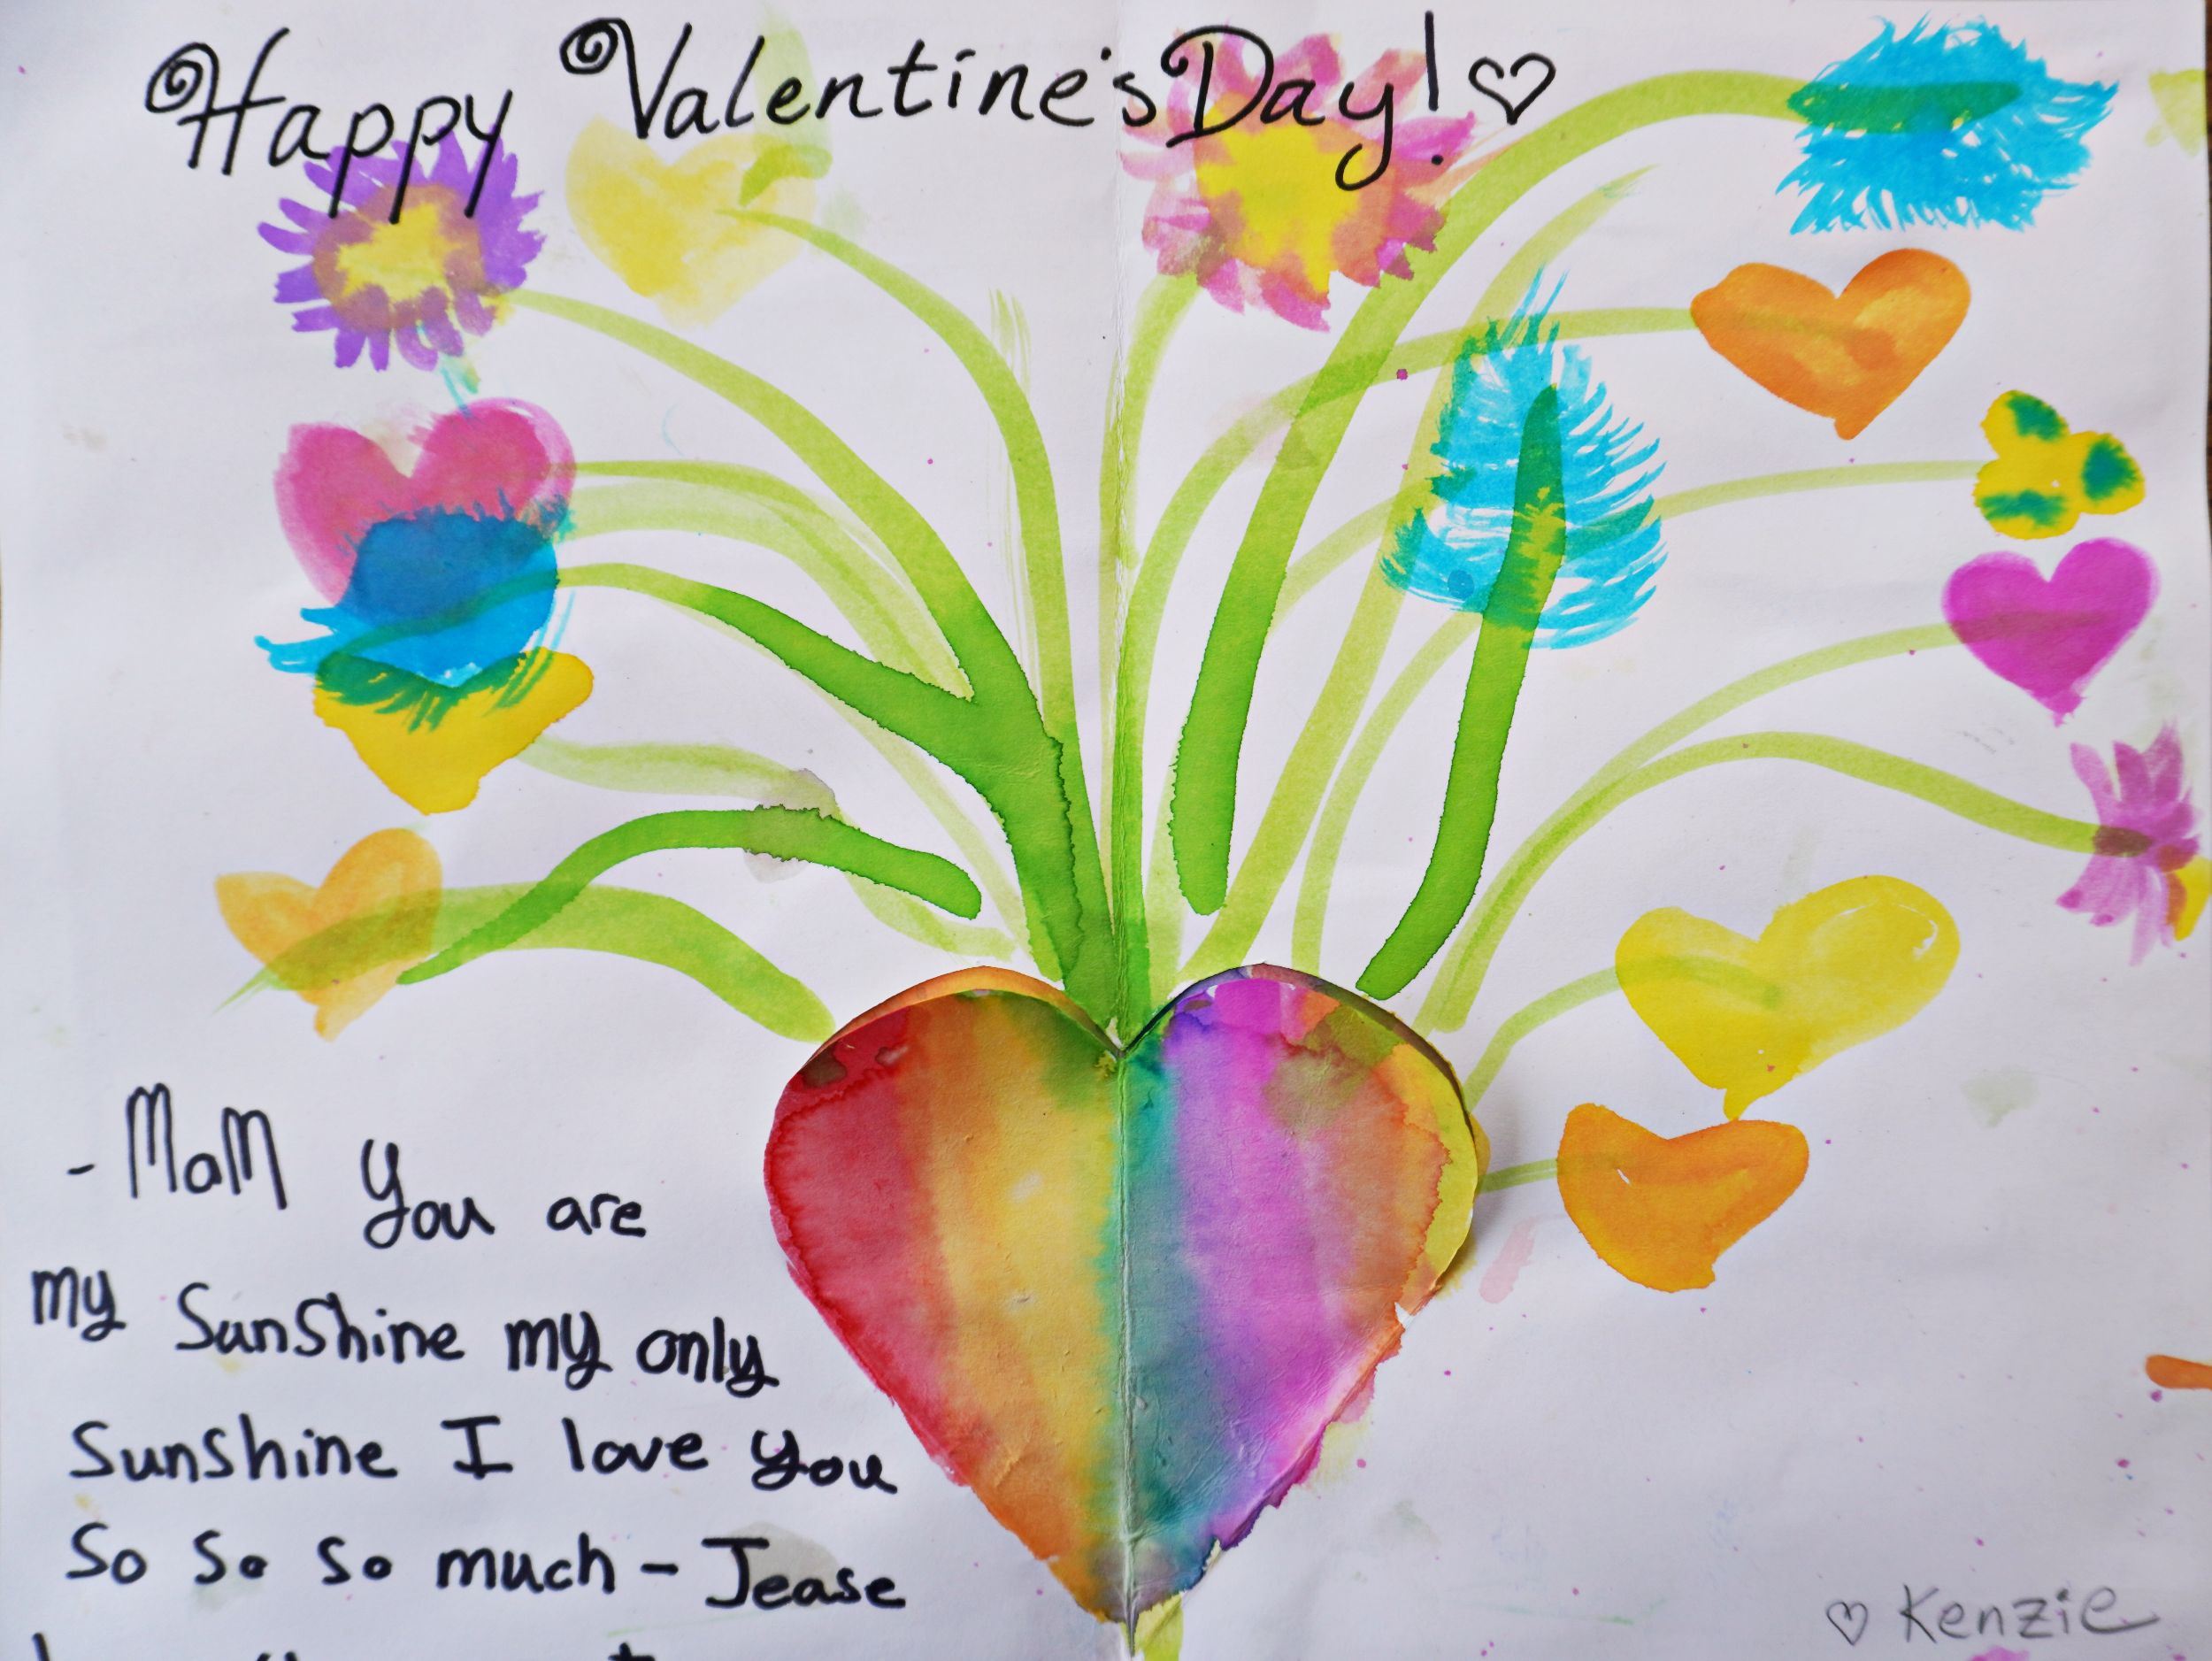 Happy Valentine's Day! ♡
- MaM you are
my Sunshine my only
Sunshine I love you
So So So much - Jease
♡ Kenzie